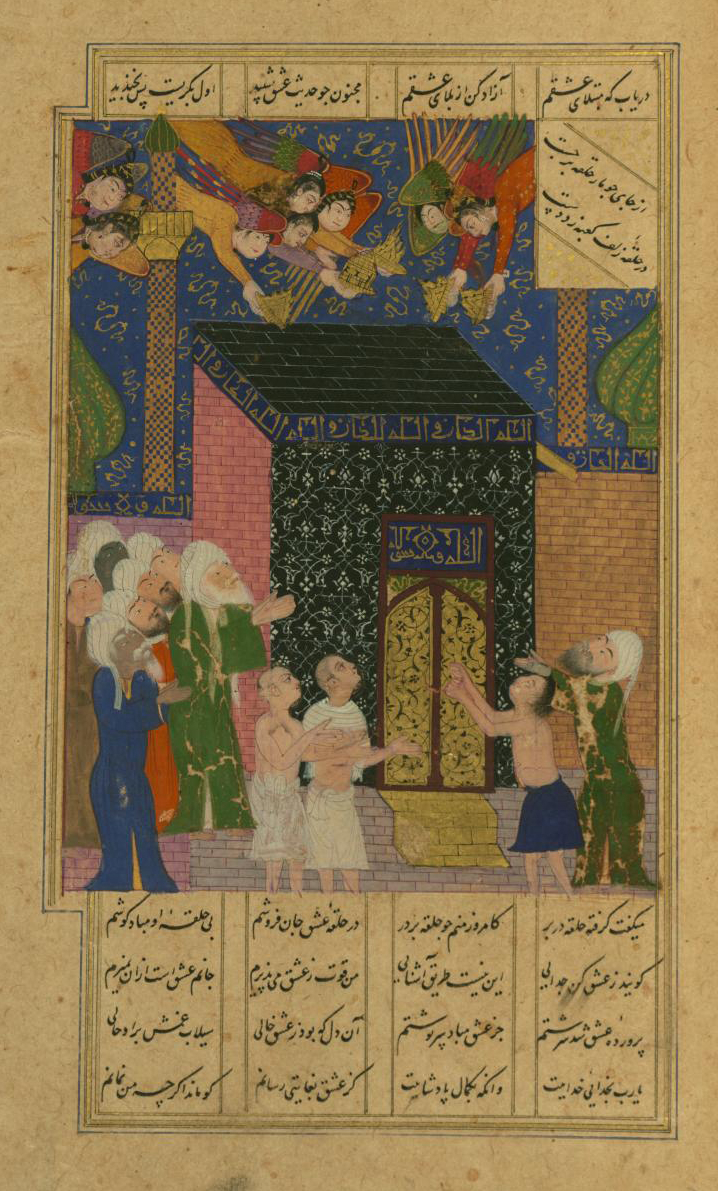 دریاب که مبتلای عشقم آزاد کن از بلای عشقم مجنون چو حدیث عشق بشنید اول بگریست پس بخندید
از جای چو مار حلقه برجست
در حلقه زلف کعبه زد دست
میگفت گرفته حلقه در بر کامروز منم چو حلقه بر در در حلقه عشق جان فروشم بی حلقه او مباد گوشم
گویند ز عشق کن جدایی این نیست طریق آشنایی من قوت ز عشق می پذیرم جانم عشق است ازان نمیرم
پرورده عشق شد سرشتم جز عشق مباد سرنوشتم آن دل که بود ز عشق خالی سیلاب غمش براد حالی
یارب بخدایی خداییت وانکه بکمال پادشاییت کز عشق بغایتی رسانم کو ماند اگر چه من نمانم